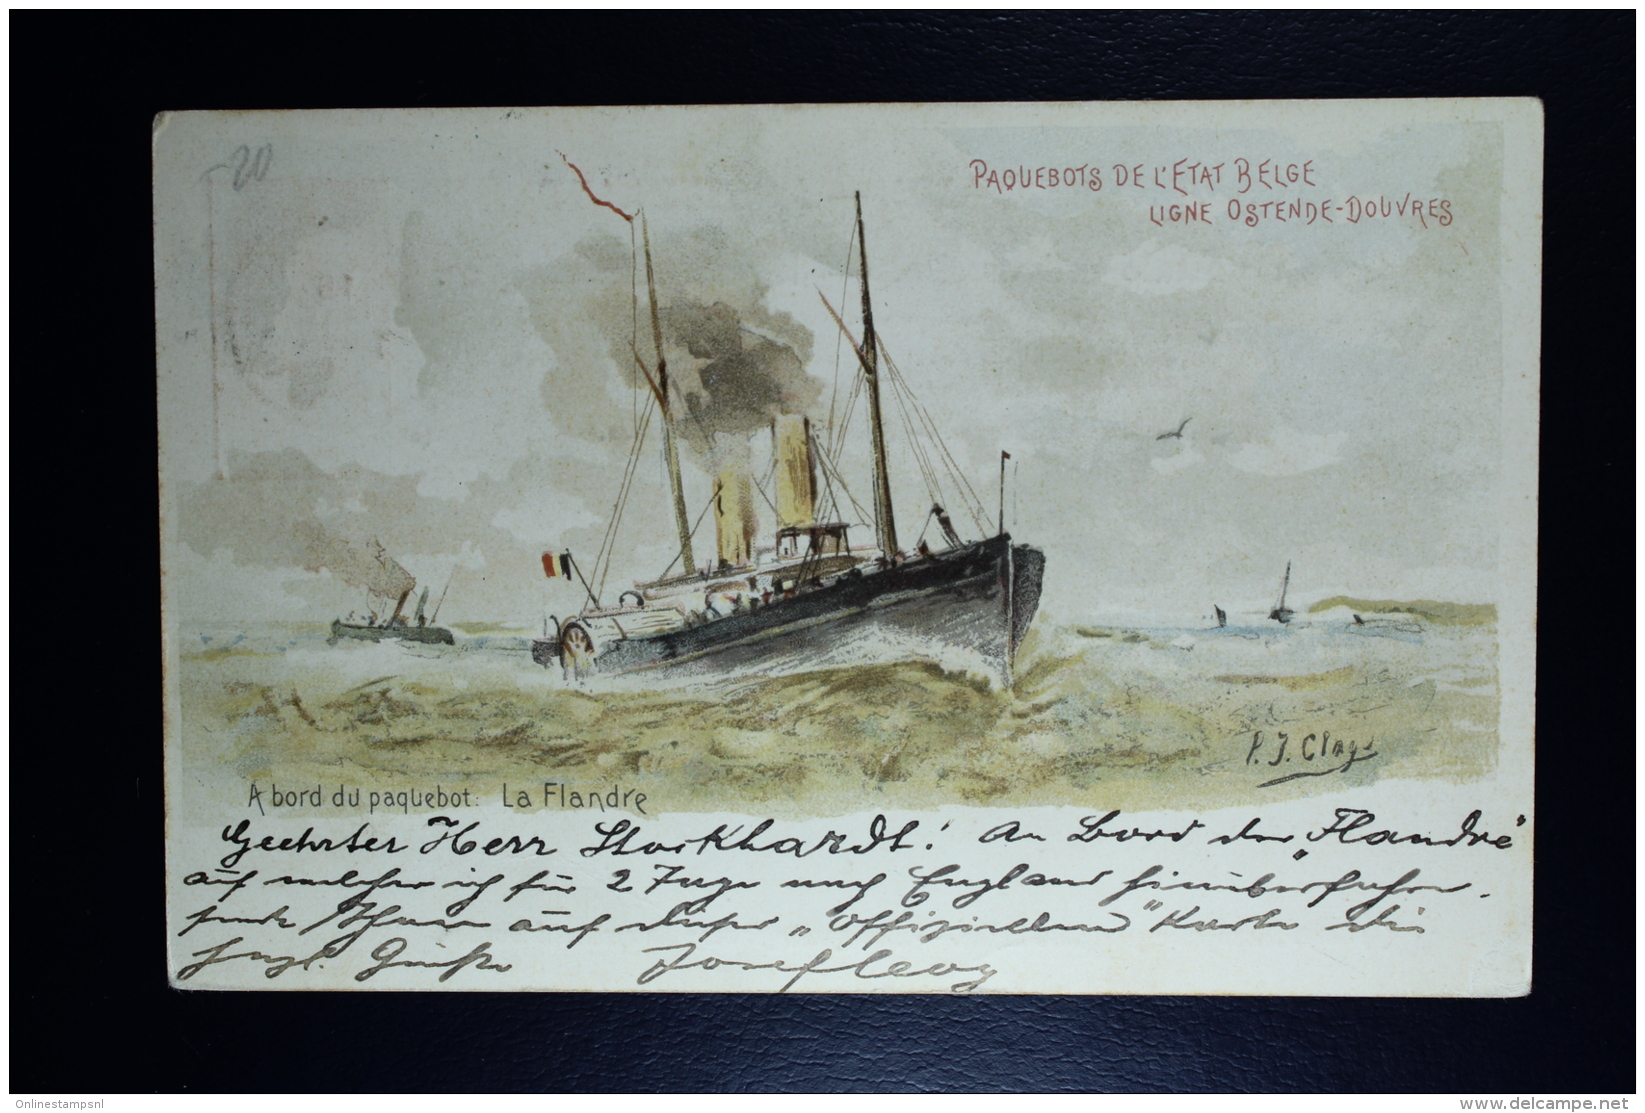 -20
PAQUEBOTS DE L'ETAT BELGE
LIGNE OSTENDE-DOUVRES
P. J. Clays
A bord du paquebot: La Flandre
Geehrter Herr Stockhardt! An Bord der „Flandre"
auf welcher ich für 2 Tage nach England hinüberfahre,
sende Ihnen auf dieser „Offiziellen" Karte die
herzl. Grüße Josef Levy
Onlinestampsnl
www.delcampe.net